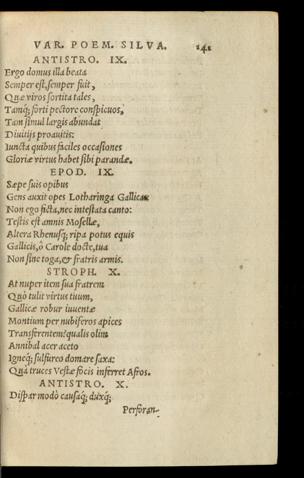 VAR. POEM. SILVA. 241
ANTISTRO. IX.
Ergo domus illa beata
Semper est, semper fuit,
Quæ viros sortita tales,
Tamq; forti pectore conspicuos,
Tam simul largis abundat
Diuitijs proauitis:
Iuncta quibus faciles occasiones
Gloriæ virtus habet sibi parandæ.
EPOD. IX.
Sæpe suis opibus
Gens auxit opes Lotharinga Gallicas
Non ego ficta, nec intestata canto:
Testis est amnis Mosellæ,
Altera Rhenusq; ripa potus equis
Gallicis, ô Carole docte, tua
Non sine toga, & fratris armis.
STROPH. X.
At nuper item sua fratrem
Quò tulit virtus tuum,
Gallicæ robur iuuentæ
Montium per nubiferos apices
Transferentem? qualis olim
Annibal acer aceto
Igneq; sulfureo domare saxa:
Quà truces Vestæ focis inferret Afros.
ANTISTRO. X.
Dispar modò causaq; duxq;
Perforan-